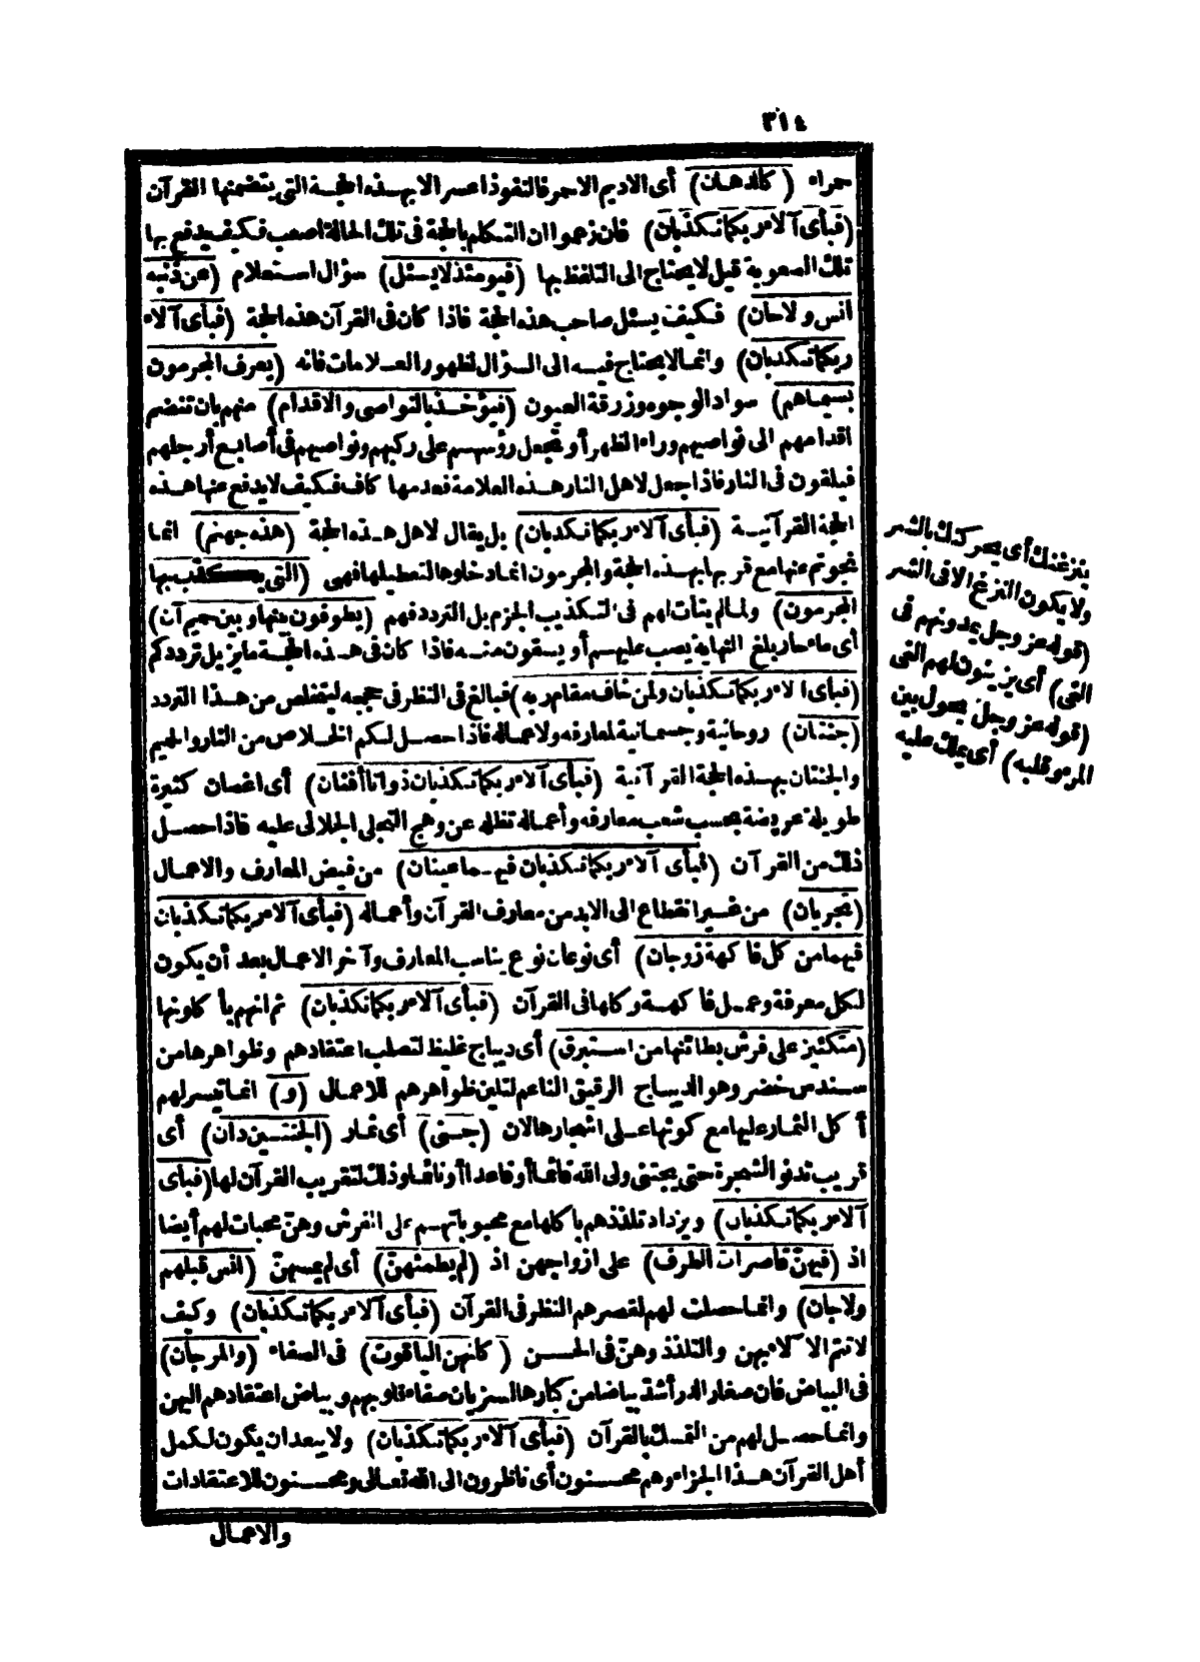 ٣١٤
حمراء (كالدهان) أى الاديم الاحمر فالنفوذ اعسر الا بهذه الحجة التى يتضمنها القرآن
(فبأى آلاء ربكما تكذبان) فان زعموا ان التكلم بالحجة فى تلك الحالة اصعب فكيف يدفع بها
تلك الصعوبة قيل لا يحتاج الى التلفظ بها (فيومئذ لا يسئل) سؤال استعلام (عن ذنبه
انس ولا جان) فكيف يسئل صاحب هذه الحجة فاذا كان فى القرآن هذه الحجة (فبأى آلاء
ربكما تكذبان) وانما لا يحتاج فيه الى السؤال لظهور العلامات فانه (يعرف المجرمون
بسيماهم) سواد الوجوه وزرقة العيون (فيؤخذ بالنواصى والاقدام) منهم بان تنضم
اقدامهم الى نواصيهم وراء الظهر أو تجعل رؤسهم على ركبهم ونواصيهم فى أصابع أرجلهم
فيلقون فى النار فاذا جعل لاهل النار هذه العلامة فعدمها كاف فكيف لا يدفع عنها هذه
الحجة القرآنية (فبأى آلاء ربكما تكذبان) بل يقال لاهل هذه الحجة (هذه جهنم) انما
نجوتم عنها مع قربها بهذه الحجة والمجرمون انما دخلوها لتعطيلها فهى (التى يكذب بها
المجرمون) ولما لم يتأت لهم فى التكذيب الجزم بل التردد فهم (يطوفون بينها وبين حميم آن)
أى ماء حار بلغ النهاية يصب عليهم أو يسقون منه فاذا كان فى هذه الحجة ما يزيل ترددكم
(فبأى آلاء ربكما تكذبان ولمن خاف مقام ربه) فبالغ فى النظر فى حججه ليتخلص من هذا التردد
(جنتان) روحانية وجسمانية لمعارفه ولاعماله فاذا حصل لكم الخلاص من النار والحميم
والجنتان بهذه الحجة القرآنية (فبأى آلاء ربكما تكذبان ذواتا أفنان) أى اغصان كثيرة
طويلة عريضة بحسب شعب معارفه وأعماله تظله عن وهج التجلى الجلالى عليه فاذا حصل
ذلك من القرآن (فبأى آلاء ربكما تكذبان فيهما عينان) من فيض المعارف والاعمال
(تجريان) من غير انقطاع الى الابد من معارف القرآن وأعماله (فبأى آلاء ربكما تكذبان
فيهما من كل فاكهة زوجان) أى نوعان نوع يناسب المعارف وآخر الاعمال بعد أن يكون
لكل معرفة وعمل فاكهة وكلها فى القرآن (فبأى آلاء ربكما تكذبان) ثم انهم يأكلونها
(متكئين على فرش بطائنها من استبرق) أى ديباج غليظ لتصلب اعتقادهم وظواهرها من
سندس خضر وهو الديباج الرقيق الناعم لتلين ظواهرهم للاعمال (و) انما تيسر لهم
أكل الثمار عليها مع كونها على اشجارها لان (جنى) أى ثمار (الجنتين دان) أى
قريب تدنو الشجرة حتى يجتنى ولى الله قائما أو قاعدا أو نائما وذلك لتقريب القرآن لها (فبأى
آلاء ربكما تكذبان) ويزداد تلذذهم باكلها مع محبوباتهم على الفرش وهن محبات لهم أيضا
اذ (فيهن قاصرات الطرف) على ازواجهن اذ (لم يطمثهن) أى لم يمسهن (انس قبلهم
ولا جان) وانما حصلت لهم لقصرهم النظر فى القرآن (فبأى آلاء ربكما تكذبان) وكيف
لا تتم الآلاء بهن والتلذذ وهن فى الحسن (كانهن الياقوت) فى الصفاء (والمرجان)
فى البياض فان صغار الدر أشد بياضا من كبارها لسريان صفاء قلوبهم وبياض اعتقادهم اليهن
وانما حصل لهم من التمسك بالقرآن (فبأى آلاء ربكما تكذبان) ولا يبعد ان يكون لكمل
أهل القرآن هذا الجزاء وهم محسنون أى ناظرون الى الله تعالى ومحسنون للاعتقادات
والاعمال
ينزغنك أى يحركنك بالشر
ولا يكون النزغ الا فى الشر
(قوله عز وجل يمدونهم فى
الغى) أى يزينون لهم الغى
(قوله عز وجل يحول بين
المرء وقلبه) أى يملك عليه